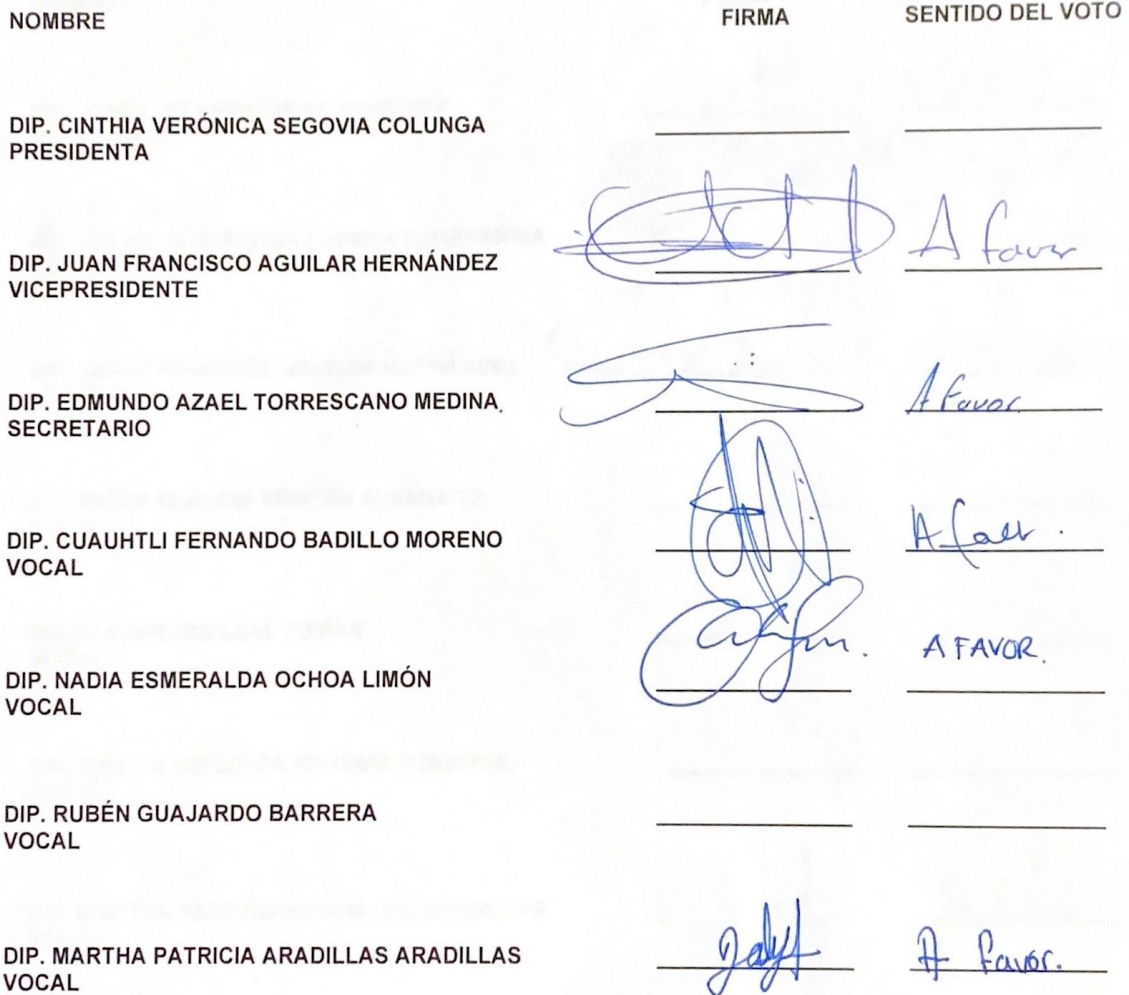 NOMBRE FIRMA SENTIDO DEL VOTO
DIP. CINTHIA VERÓNICA SEGOVIA COLUNGA
PRESIDENTA
DIP. JUAN FRANCISCO AGUILAR HERNÁNDEZ A favor
VICEPRESIDENTE
DIP. EDMUNDO AZAEL TORRESCANO MEDINA A Favor.
SECRETARIO
DIP. CUAUHTLI FERNANDO BADILLO MORENO A
VOCAL
A FAVOR.
DIP. NADIA ESMERALDA OCHOA LIMÓN
VOCAL
DIP. RUBÉN GUAJARDO BARRERA
VOCAL
DIP. MARTHA PATRICIA ARADILLAS ARADILLAS A Favor.
VOCAL